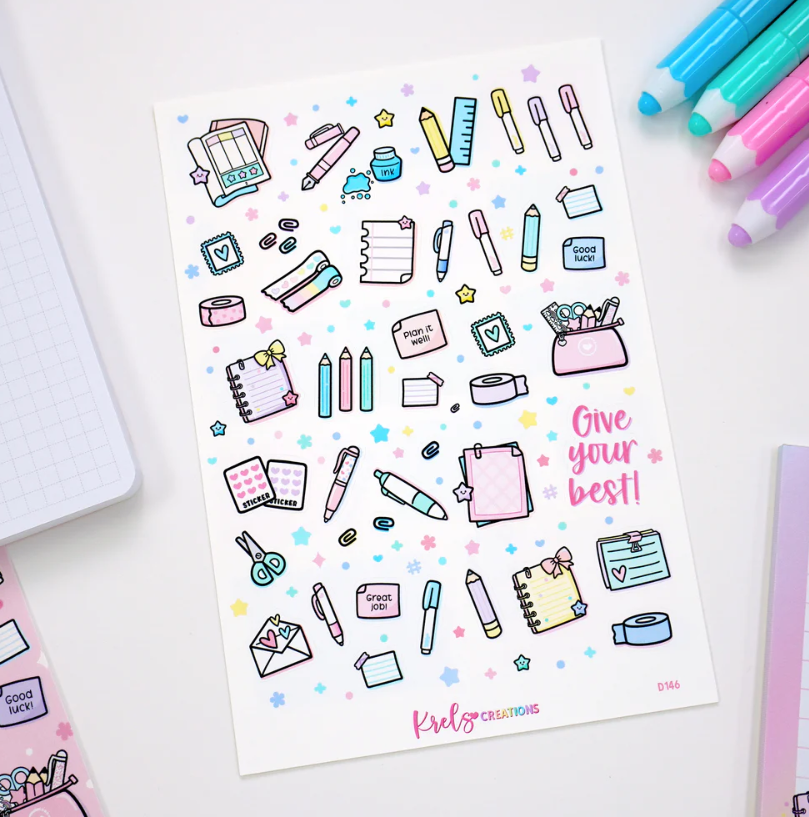 ink
Good
luck!
Plan it
well!
Give
your
best!
STICKER
STICKER
Great
job!
D146
Krels CREATIONS
Good
luck!